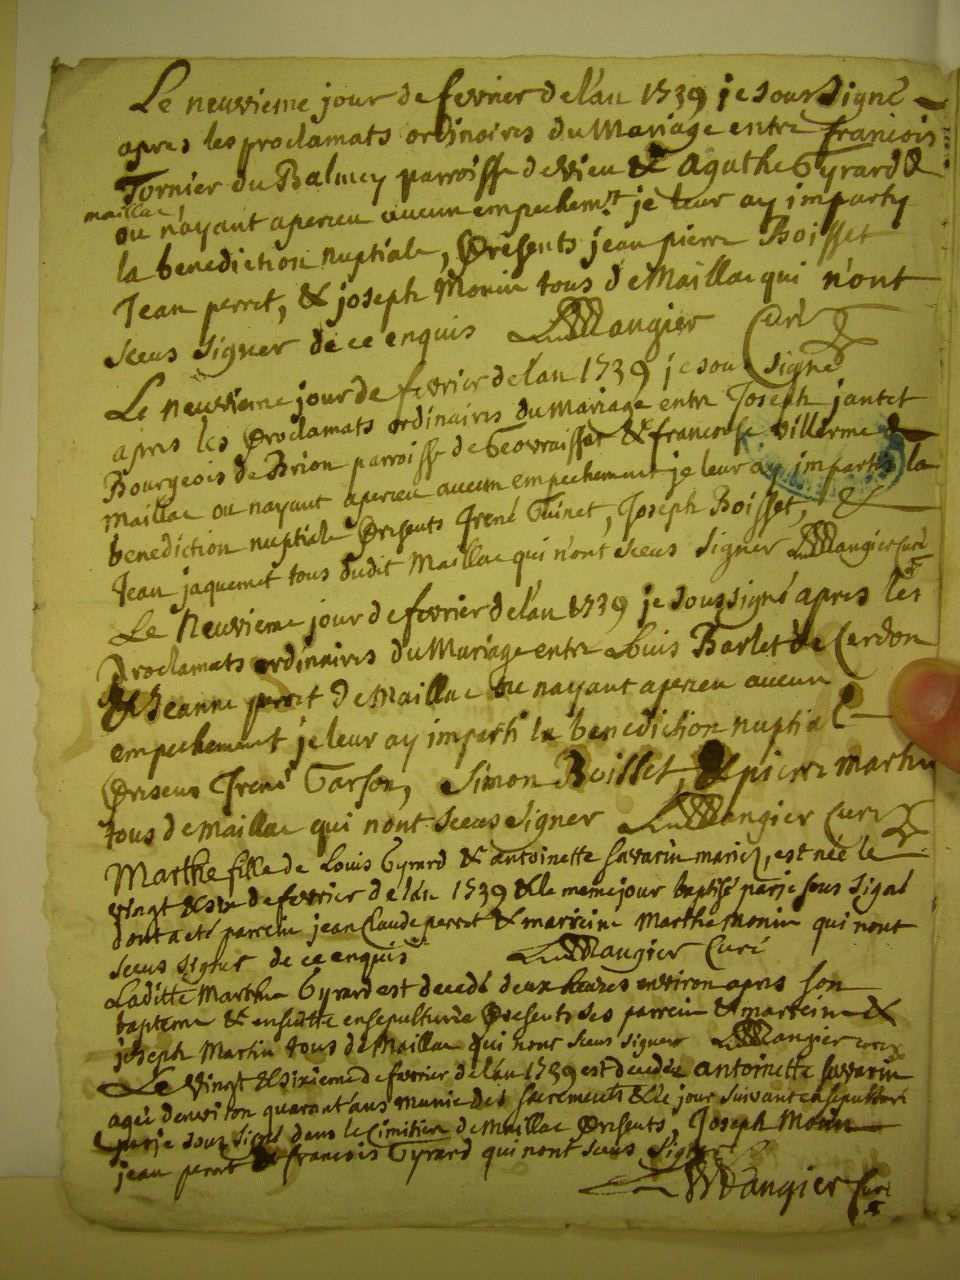 Le neuvieme jour de fevrier de l'an 1739 je soussigné
apres les proclamats ordinaires du Mariage entre francois
Tornier du Balmey parroisse de vieu & Agathe Gyrard de
maillac
ou n'ayant aperceu aucun empechemt je leur ay imparty
la benediction nuptiale, Présents jean pierre Boisset
Jean perret, & joseph Monin tous de Maillac qui n'ont
sceus signer de ce enquis Mangier Curé
Le neuvieme jour de fevrier de lan 1739 je sousigné
apres les Proclamats ordinaires du Mariage entre Joseph jantet
Bourgeois de Brion parroisse de Geovraisset & francoise villerme de
Maillac ou nayant aperceu aucum empechement je leur ay imparti la
benediction nuptiale Presents Irené Guinet, Joseph Boisset, &
Jean jaquemet tous dudit Maillac qui n'ont sceus signer Mangier curé
Le Neuvieme jour de fevrier de l'an 1739 je soussigné apres les
Proclamats ordinaires du Mariage entre Louis Barlet de Cerdon
& Jeanne perret de Maillac ou nayant aperceu aucun
empechement je leur ay imparti la benediction nuptial
Presens Irené Garson, Simon Boisset, & pierre martin
tous de Maillac qui nont sceus signer Mangier Curé
Marthe fille de Louis Gyrard & antoinette savarin mariez, est née le
vingt & six de fevrier de lan 1739 & le meme jour baptisé par je sous signé
dont a eté parrein jean Claude perret & marreine Marthe Monin qui nont
sceus signer de ce enquis Mangier Curé
Laditte Marthe Gyrard est decedé deux heures environ apres son
bapteme & ensuitte ensepulturée Presents ses parrein & marreine &
joseph Martin tous de Maillac qui nont sceus signer Mangier curé
Le vingt & sixieme de fevrier de l'an 1739 est decedée antoinette savarin
agée denviron quarant'ans munie des sacrements & le jour suivant ensepulturé
par je sous signé dans le Cimitiere de Maillac Presents, Joseph Monin
jean perret & francois Gyrard qui nont sceus signer
Mangier Curé